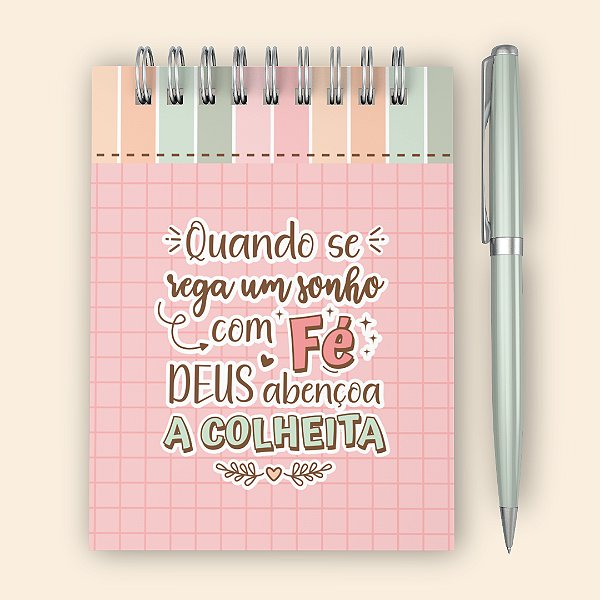 Quando se
rega um sonho
com Fé
DEUS abençoa
A COLHEITA